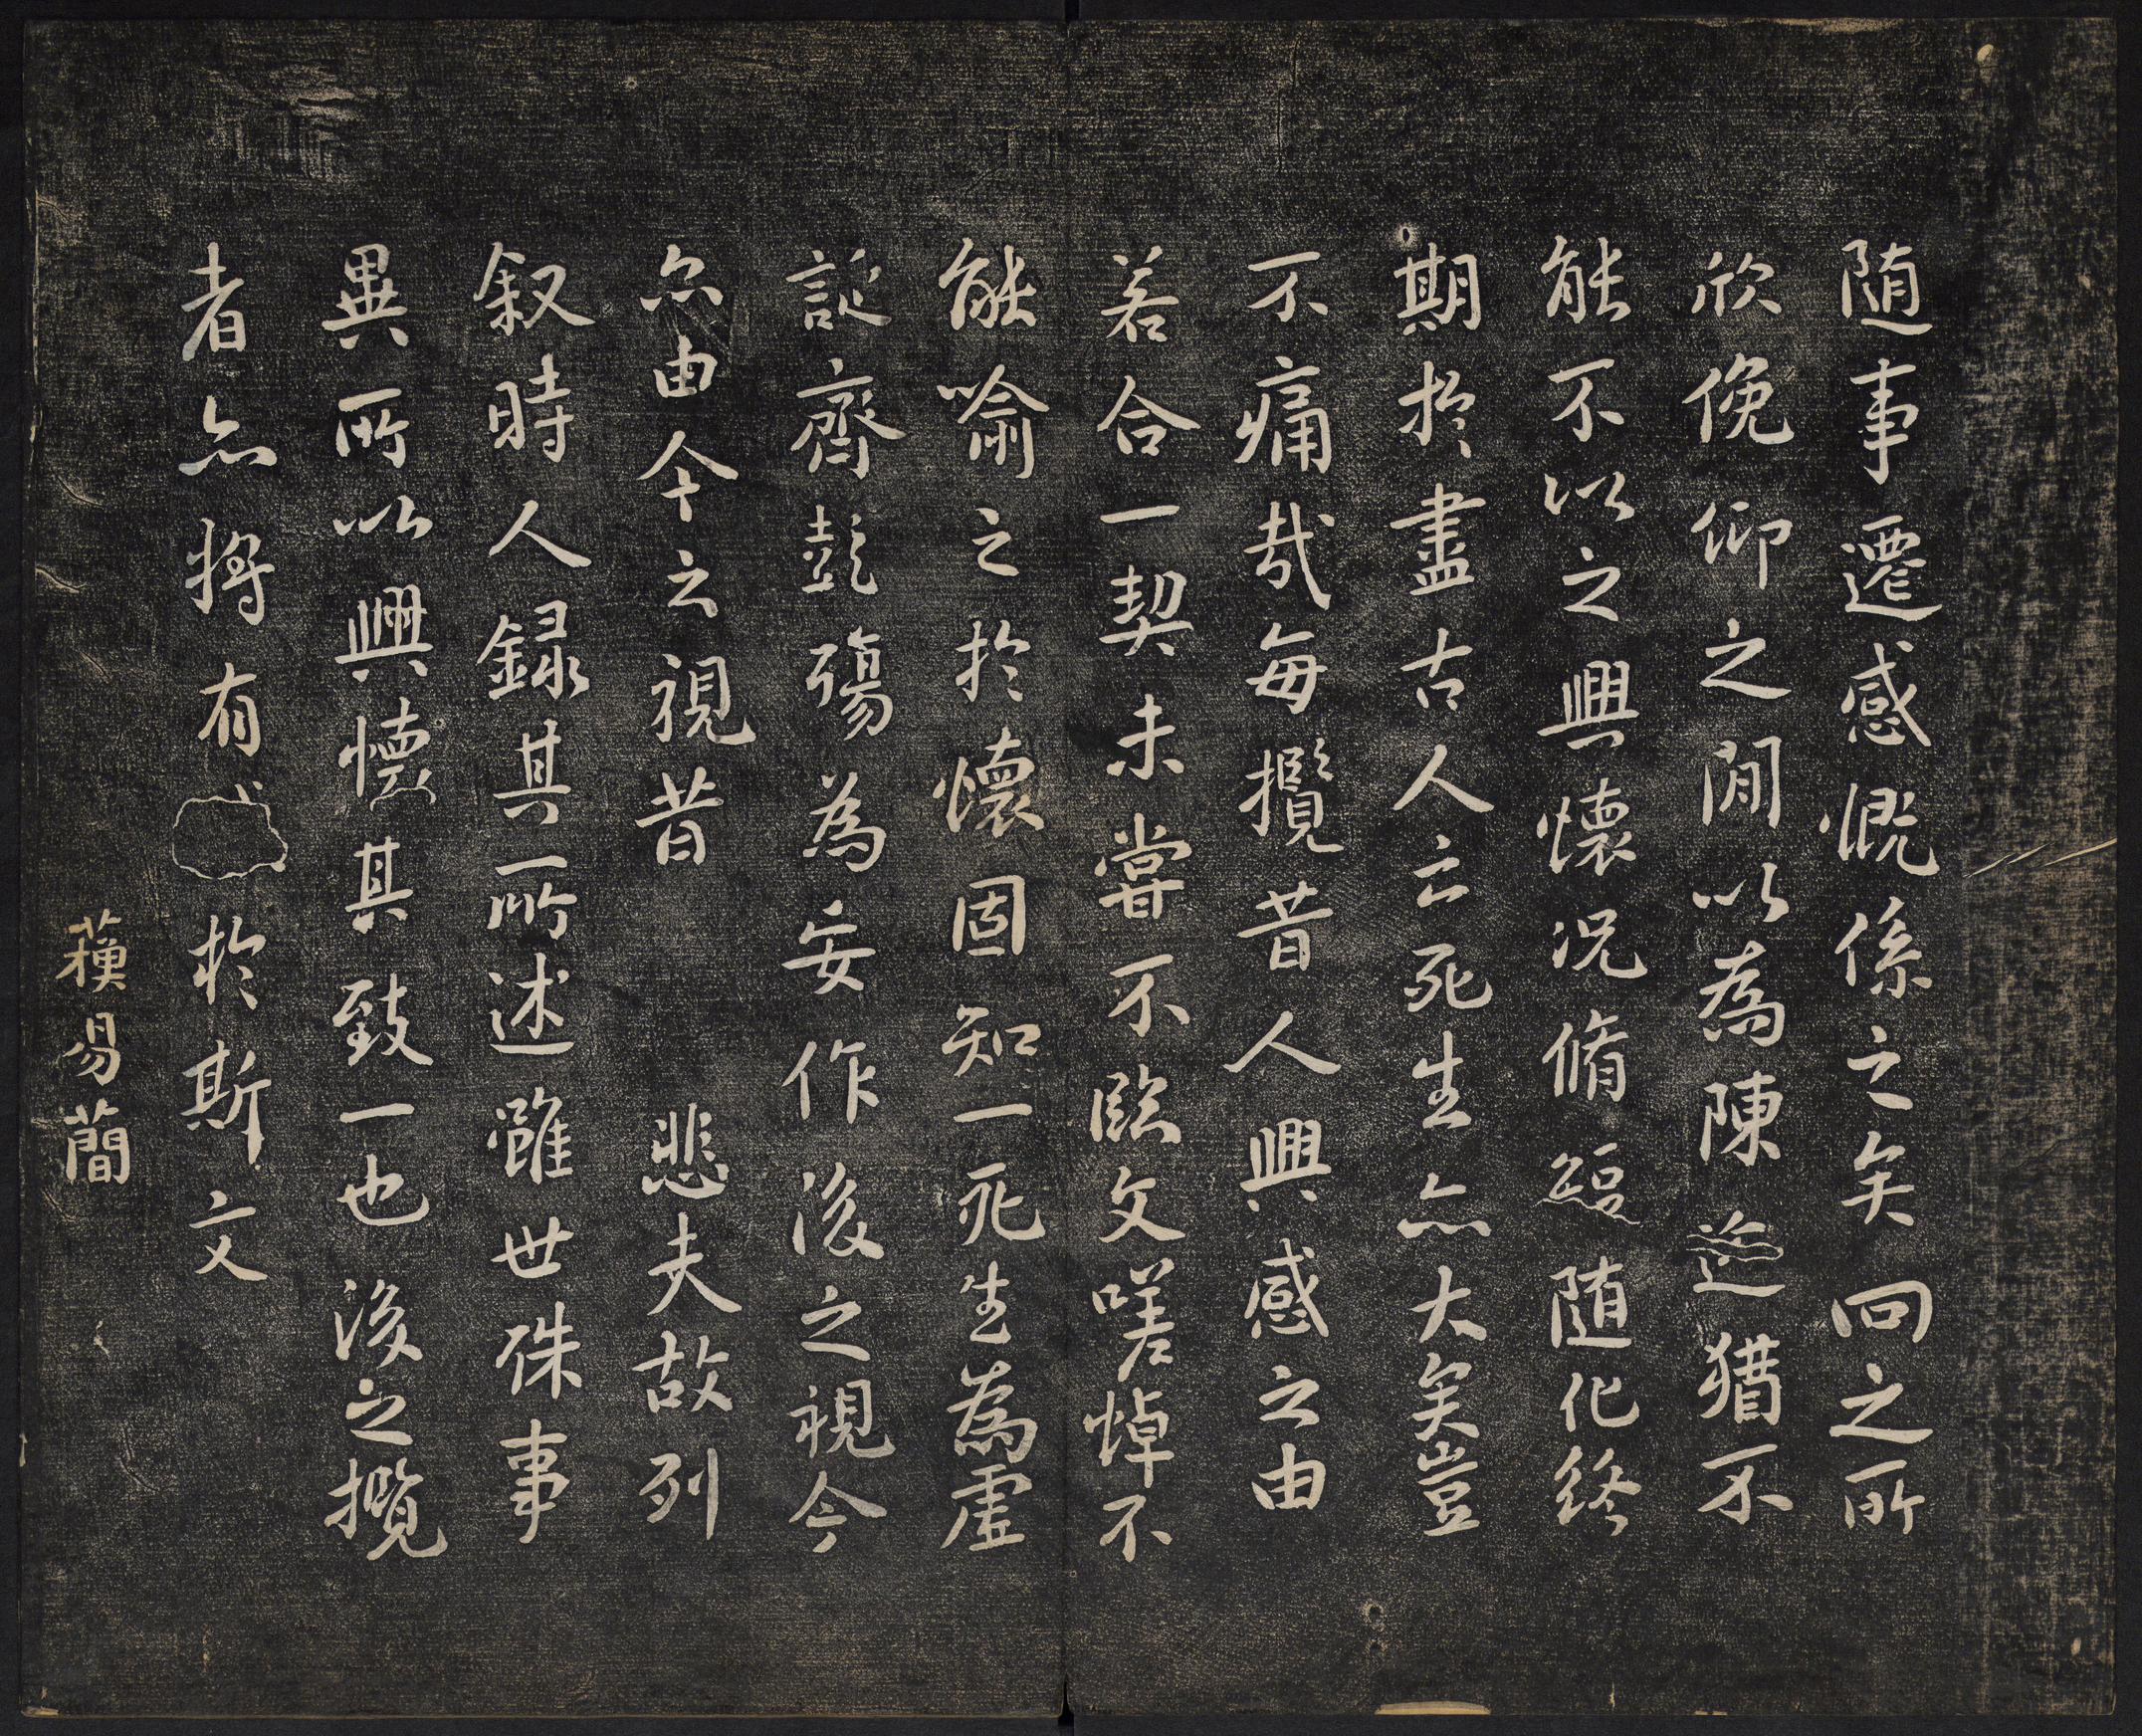 随事遷感慨係之矣向之所
欣俛仰之閒以為陳迹猶不
能不以之興懷况脩短随化終
期於盡古人云死生亦大矣豈
不痛哉每攬昔人興感之由
若合一契未甞不臨文嗟悼不
能喻之於懷固知一死生為虛
誕齊彭殤為妄作後之視今
亦由今之視昔 悲夫故列
叙時人録其所述雖世殊事
異所以興懷其致一也後之攬
者亦将有感於斯文
蘇易簡